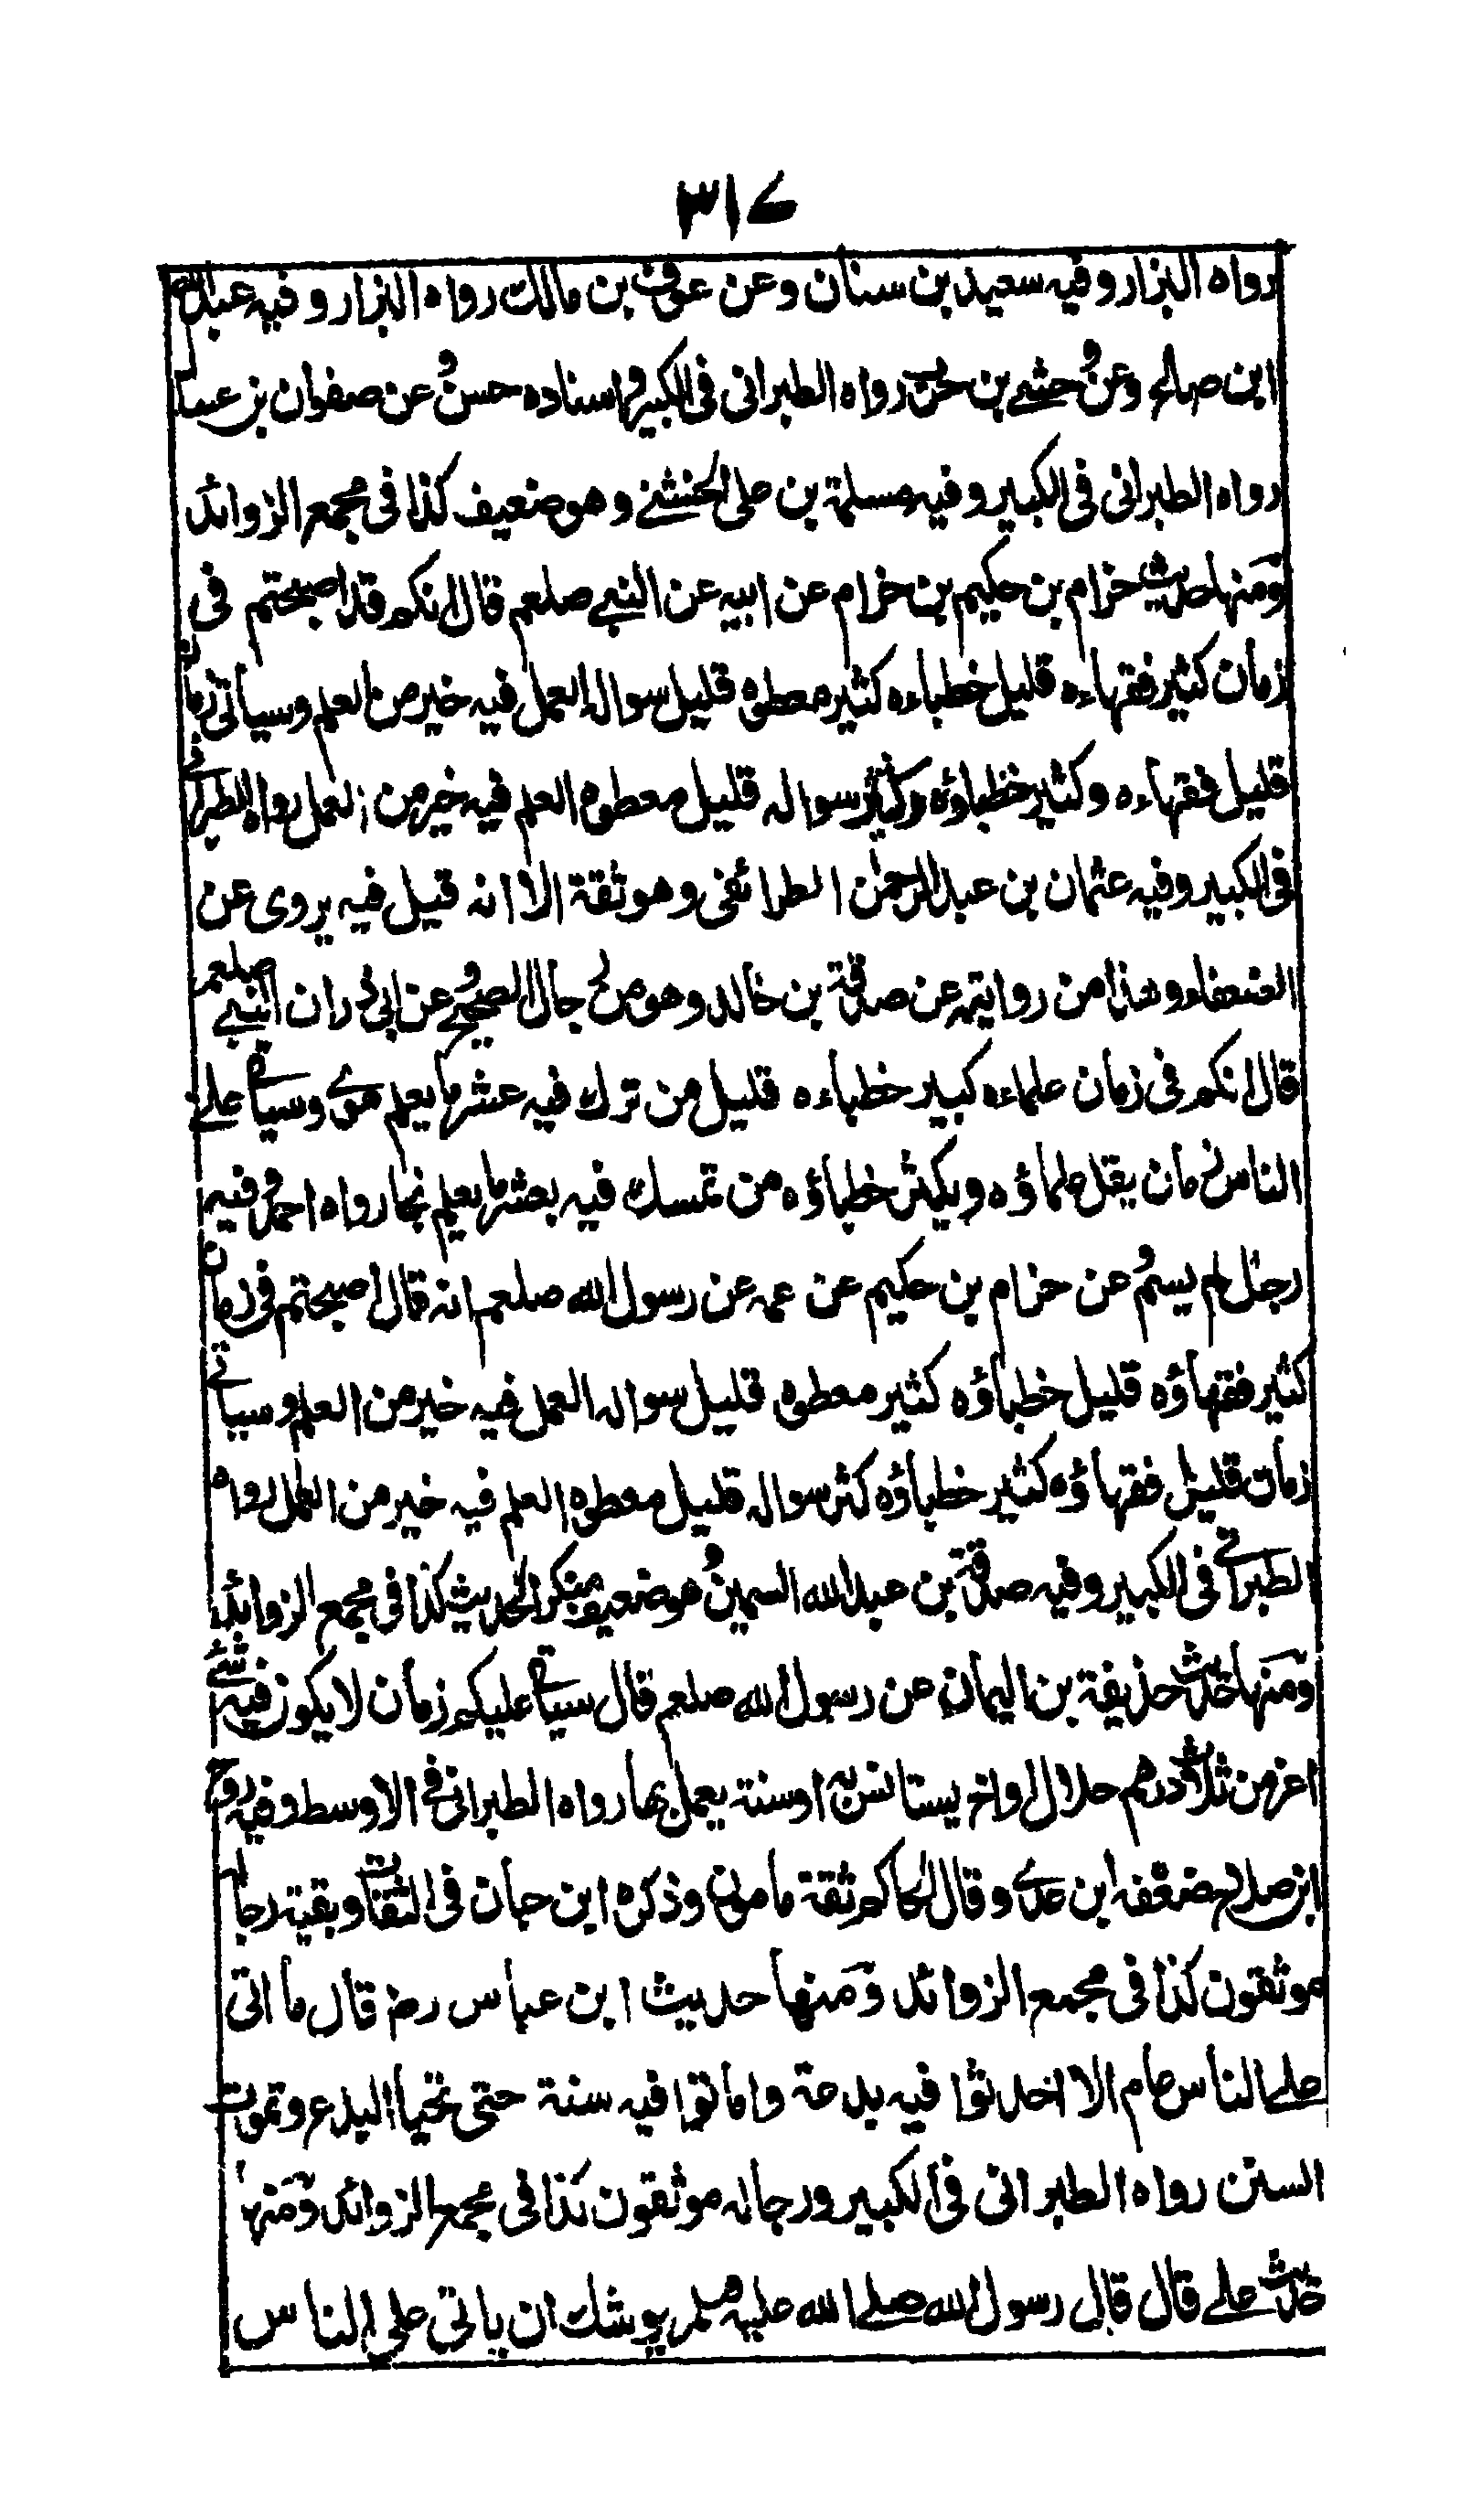 ۳۱۷
رواه البزار وفيه سعيد بن سنان وعن عوف بن مالك رواه البزار وفيه عبد الله
ابن صالح وعن وحشي بن حرب رواه الطبراني في الكبير اسناده حسن وعن صفوان بن عسال
رواه الطبراني في الكبير وفيه مسلمة بن علي الخشني وهو ضعيف كذا في مجمع الزوائد
ومنها حديث حزام بن حكيم بن حزام عن ابيه عن النبي صلعم قال انكم قد اصبحتم في
زمان كثير فقهاءه قليل خطباءه كثير معطوه قليل سواله العمل فيه خير من العلم وسياتي زمان
قليل فقهاءه وكثير خطباؤه وكثير سواله قليل معطوه العلم فيه خير من العمل رواه الطبراني
في الكبير وفيه عثمان بن عبد الرحمن الطرائفي وهو ثقة الا انه قيل فيه يروى عن
الضعفاء وهذا من روايته عن صدقة بن خالد وهو من رجال الصحيح وعن ابي ذر ان النبي صلعم
قال انكم في زمان علماءه كبير خطباءه قليل من ترك فيه عشر ما يعلم هوى وسياتي على
الناس زمان يقل علماؤه ويكثر خطباؤه من تمسك فيه بعشر ما يعلم نجا رواه احمد وفيه
رجل لم يسم وعن حزام بن حكيم عن عمه عن رسول الله صلعم انه قال اصبحتم في زمان
كثير فقهاؤه قليل خطباؤه كثير معطوه قليل سواله العمل فيه خير من العلم وسياتي
زمان قليل فقهاؤه كثير خطباؤه كثر سواله قليل معطوه العلم فيه خير من العمل رواه
الطبراني في الكبير وفيه صدقة بن عبد الله السمين وهو ضعيف منكر الحديث كذا في مجمع الزوائد
ومنها حديث حذيفة بن اليمان عن رسول الله صلعم قال سياتي عليكم زمان لا يكون فيه شيء
اعز من ثلاث درهم حلال او اخ يستانس به او سنة يعمل بها رواه الطبراني في الاوسط وفيه روح
ابن صلاح ضعفه ابن عدي وقال الحاكم ثقة مامون وذكره ابن حبان في الثقات وبقية رجاله
موثقون كذا في مجمع الزوائد ومنها حديث ابن عباس رضـ قال ما اتى
على الناس عام الا احدثوا فيه بدعة واماتوا فيه سنة حتى تحيا البدع وتموت
السنن رواه الطبراني في الكبير ورجاله موثقون كذا في مجمع الزوائد ومنها
حديث علي قال قال رسول الله صلى الله عليه وسلم يوشك ان ياتي على الناس